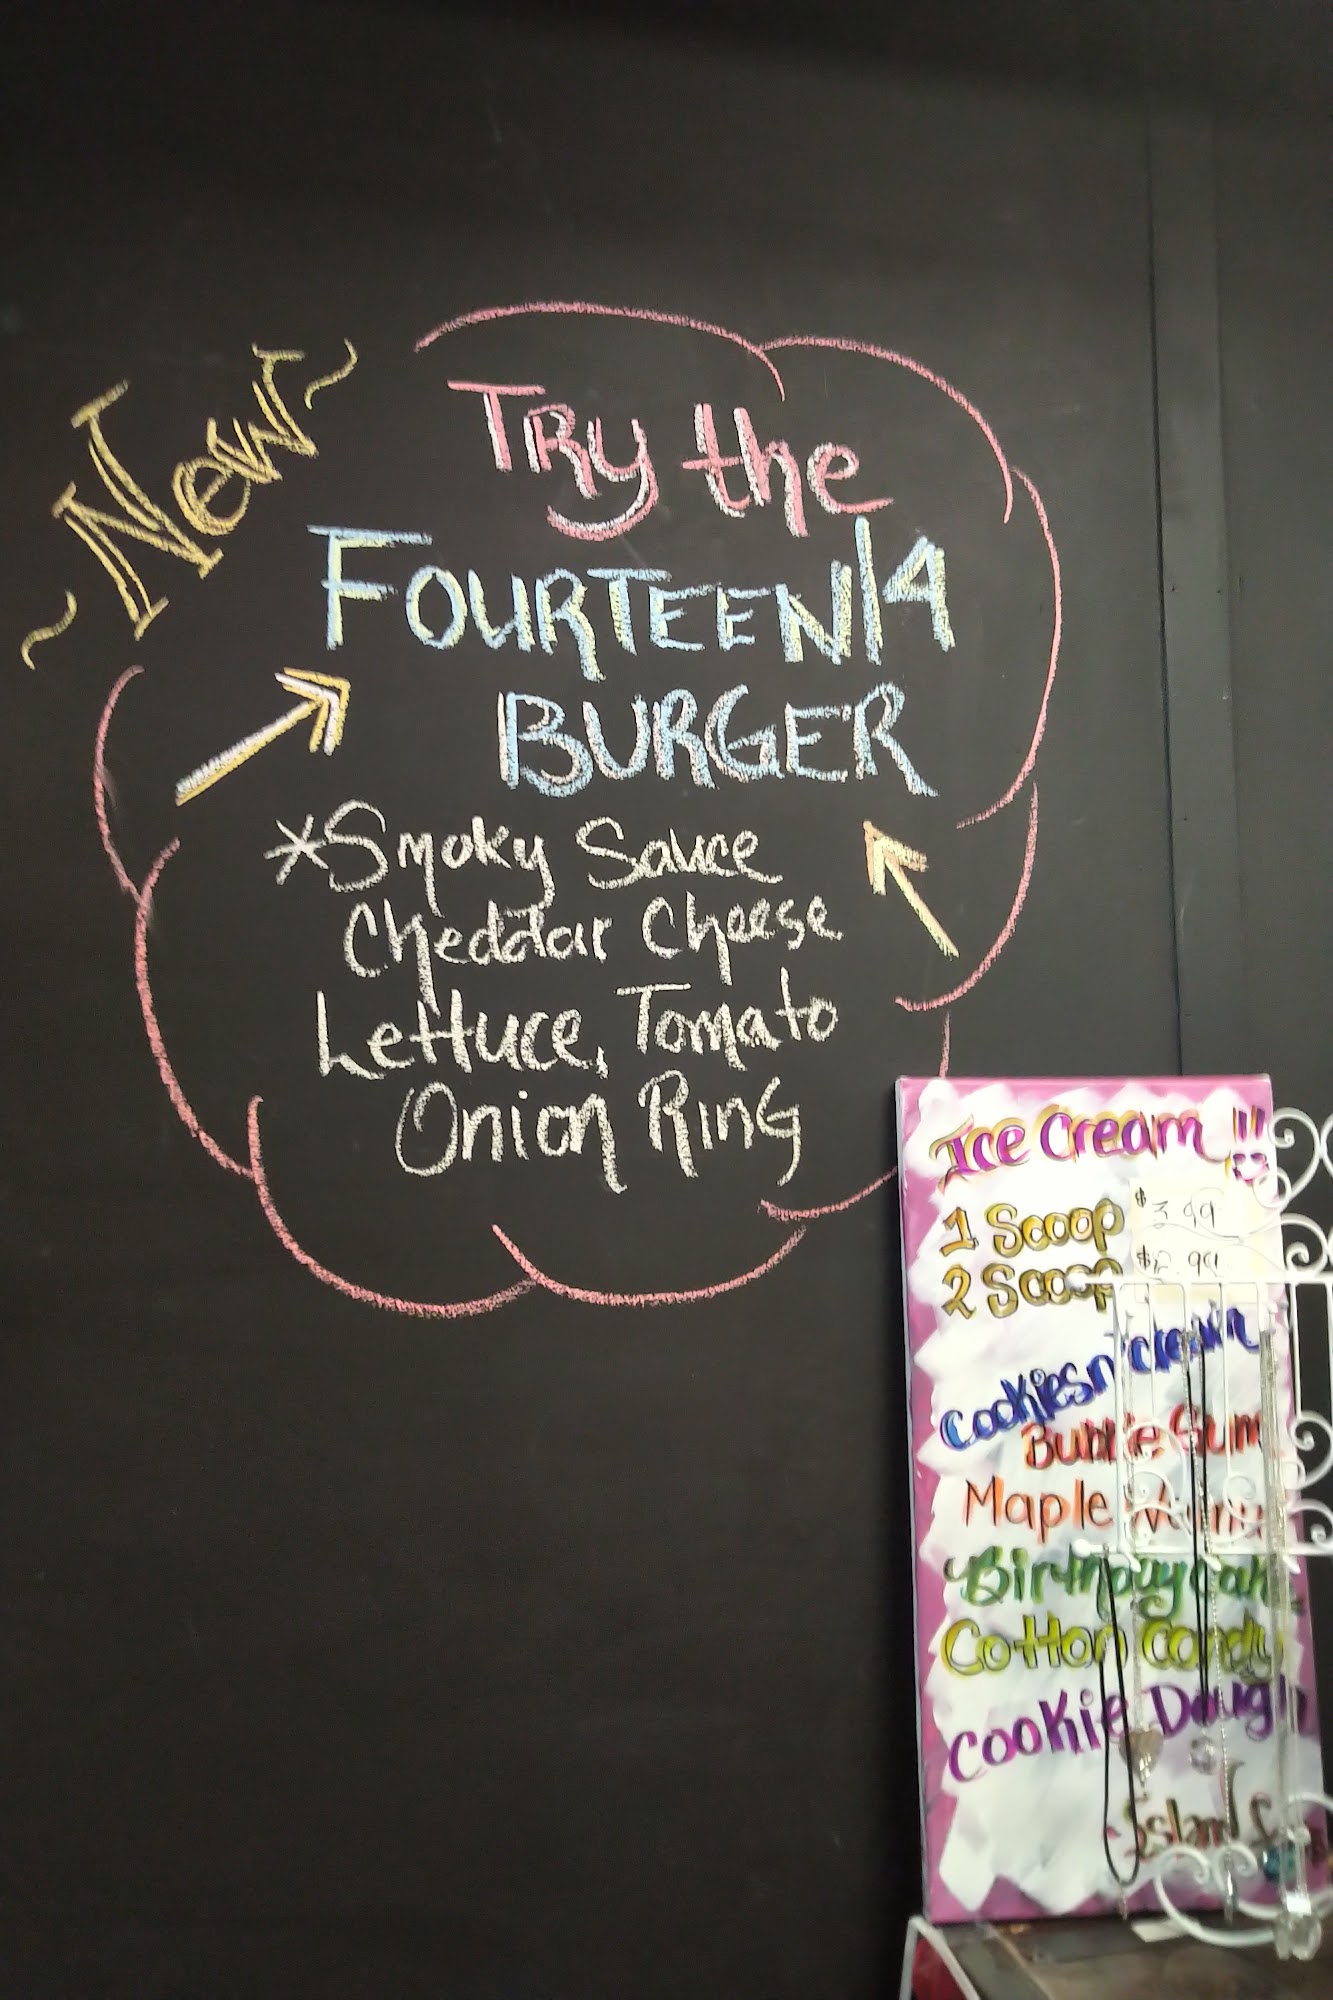 ~New~
Try the
FOURTEEN14
BURGER
*Smoky Sauce
Cheddar Cheese
Lettuce, Tomato
Onion Ring
Ice Cream !!!
1 Scoop $3.99
2 Scoop
Cookies n' cream
Bubble Gum
Maple
Birthday Cake
Cotton Candy
Cookie Dough
Island